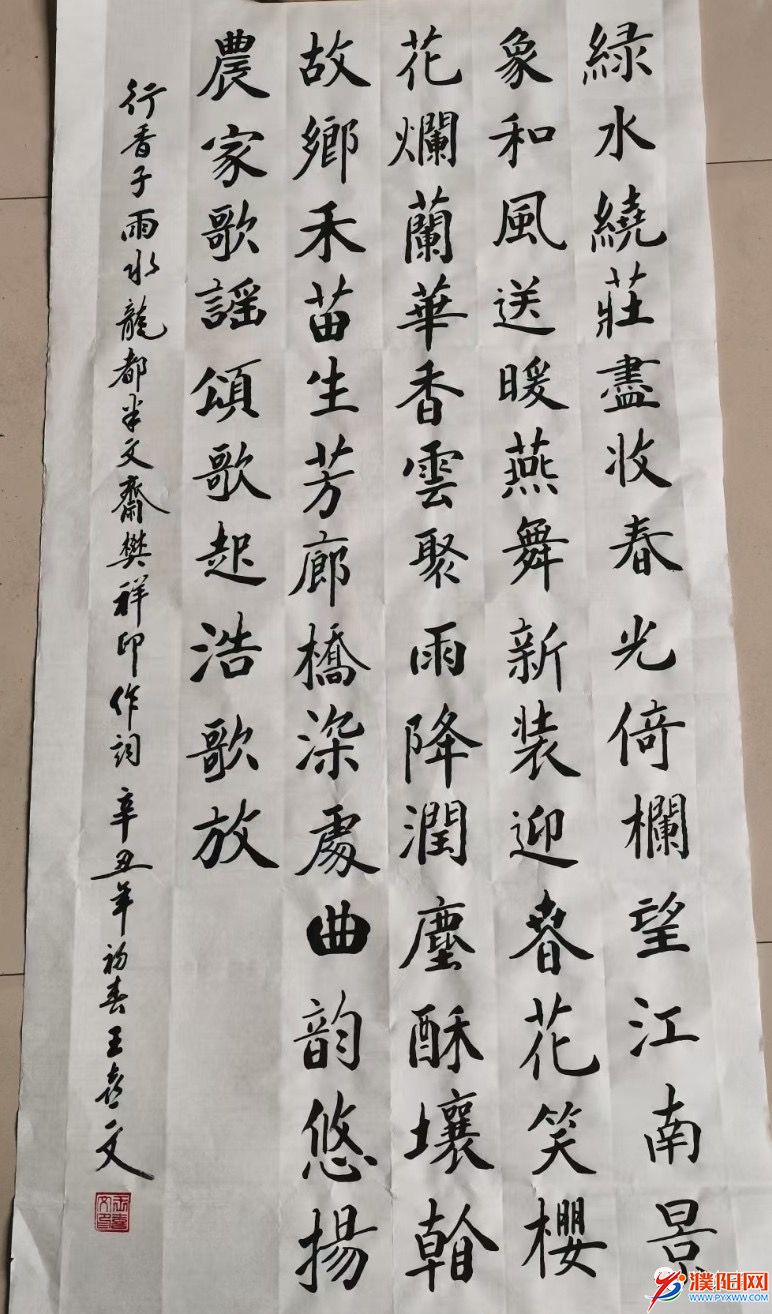 緑水繞莊盡收春光倚欄望江南景
象和風送暖燕舞新装迎春花笑櫻
花爛蘭華香雲聚雨降潤塵酥壤翰
故鄉禾苗生芳廊橋深處曲韵悠揚
農家歌謡頌歌起浩歌放
行香子雨水龍都半文齋樊祥印作詞辛丑年初春王喜文
濮阳网
WWW.PYXWW.COM